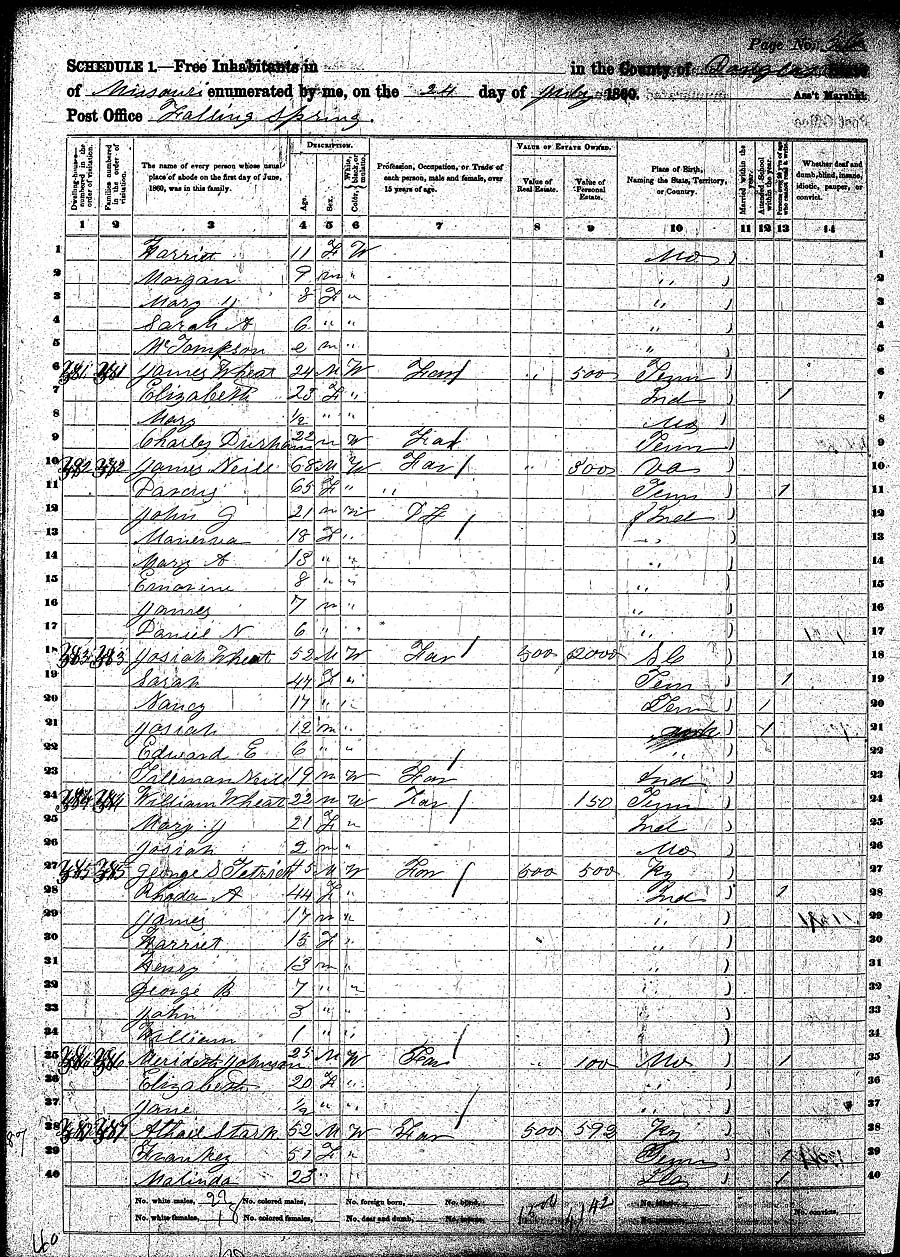 Page No.
SCHEDULE 1.—Free Inhabitants in in the County of Douglas State
of Missouri enumerated by me, on the 24 day of July 1860. Ass't Marshal.
Post Office Falling Spring.
Dwelling-houses numbered in the order of visitation. Families numbered in the order of visitation. The name of every person whose usual place of abode on the first day of June, 1860, was in this family. DESCRIPTION. Age. Sex. Color, White, black, or mulatto. Profession, Occupation, or Trade of each person, male and female, over 15 years of age. VALUE OF ESTATE OWNED. Value of Real Estate. Value of Personal Estate. Place of Birth, Naming the State, Territory, or Country. Married within the year. Attended School within the year. Persons over 20 y'rs of age who cannot read & write. Whether deaf and dumb, blind, insane, idiotic, pauper, or convict.
1 2 3 4 5 6 7 8 9 10 11 12 13 14
1 Harriet 11 F W Mo 1
2 Morgan 9 m " " 2
3 Mary J 8 F " " 3
4 Sarah A 6 " " " 4
5 McTompson 2 m " " 5
6 381 381 James Wheat 24 M W Far " 500 Tenn 6
7 Elizabeth 23 F " Ind 1 7
8 Mary ½ " " Mo 8
9 Charles Durham 22 m W Far Tenn 9
10 382 382 James Neill 68 M W Far " 300 Va 10
11 65 F " " Tenn 1 11
12 John J 21 m " Ind 12
13 Manerva 18 F " " 13
14 Mary A 13 " " " 14
15 8 " " " 15
16 James 7 m " " 16
17 Daniel N 6 " " " 17
18 383 383 Josiah Wheat 52 M W Far 500 2000 S C 18
19 Sarah 47 F " Tenn 1 19
20 Nancy 17 " " Tenn 1 20
21 Josiah 12 m " 1 21
22 Edward E 6 " " " 22
23 Tillman Neill 19 m W Far Ind 23
24 384 384 William Wheat 22 m W Far 150 Tenn 24
25 Mary J 21 F " Ind 25
26 Josiah 2 m " Mo 26
27 385 385 George S 45 M W Far 500 500 Ky 27
28 Rhoda A 44 F " Ind 1 28
29 James 17 m " " 29
30 Harriet 15 F " " 30
31 Henry 13 m " " 31
32 George B 7 " " 32
33 John 3 " " 33
34 William 1 " " 34
35 386 386 Johnson 25 M W Far " 100 Mo 1 35
36 Elizabeth 20 F " " 36
37 Jane ½ " " " 37
38 387 387 Stark 52 M W Far 500 592 Ky 38
39 Frankey 51 F " Tenn 1 39
40 Malinda 23 " " 1 40
No. white males, 22 No. colored males, No. foreign born, No. blind,
No. white females, 18 No. colored females, No. deaf and dumb, No. insane, No. convicts,